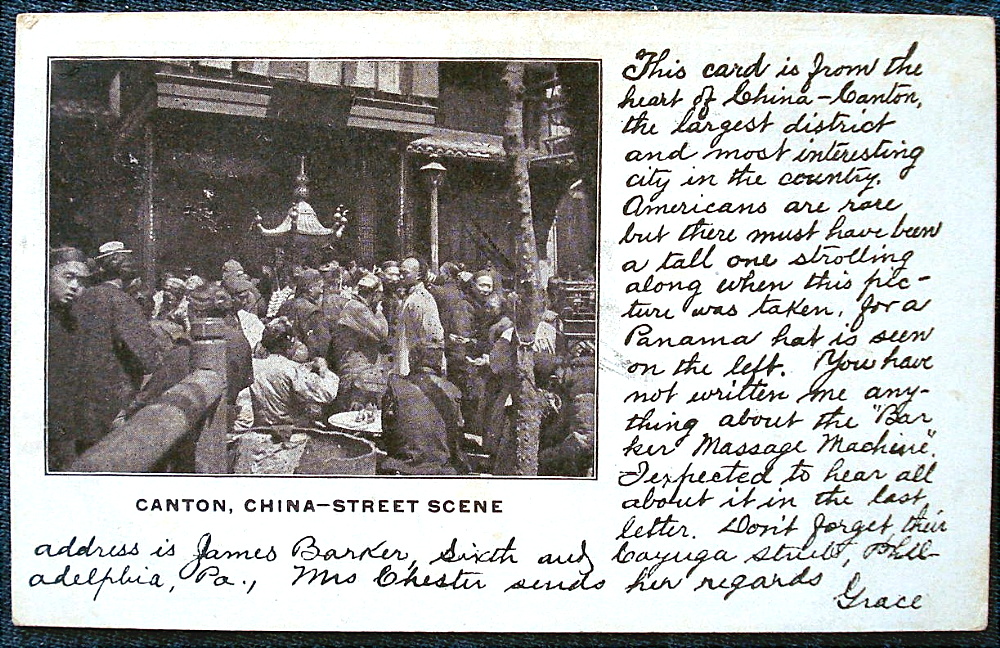 This card is from the
heart of China-Canton,
the largest district
and most interesting
city in the country.
Americans are rare
but there must have been
a tall one strolling
along when this pic-
ture was taken, for a
Panama hat is seen
on the left. You have
not written me any-
thing about the "Bar
ker Massage Machine".
I expected to hear all
about it in the last
letter. Don't forget their
address is James Barker, Sixth and Cayuga Street, Phil-
adelphia, Pa., Mrs Chester sends her regards
Grace
CANTON, CHINA—STREET SCENE